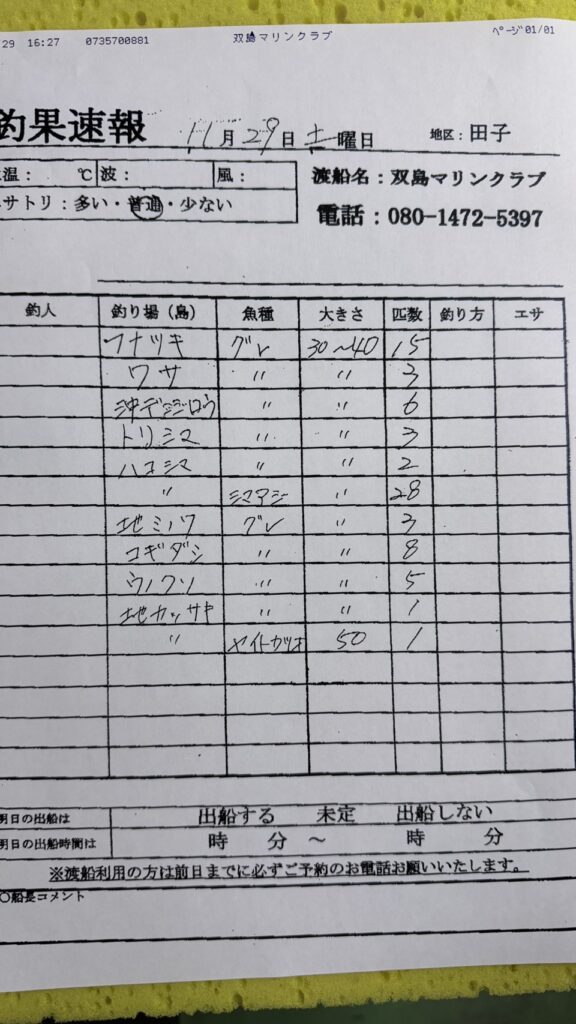 29 16:27 0735700881 双島マリンクラブ ページ 01/01
釣果速報 11月29日 土 曜日 地区：田子
温： ℃ 波： 風：
渡船名：双島マリンクラブ
サトリ：多い・普通・少ない
電話：080-1472-5397
釣人 釣り場（島） 魚種 大きさ 匹数 釣り方 エサ
フナツキ グレ 30〜40 15
ワサ 〃 〃 3
沖デンジロウ 〃 〃 6
トリシマ 〃 〃 3
ハコシマ 〃 〃 2
〃 シマアジ 〃 28
地ミハワ グレ 〃 3
コギダシ 〃 〃 8
ウノクソ 〃 〃 5
地カッサヤ 〃 〃 1
〃 ヤイトカツオ 50 1
明日の出船は 出船する 未定 出船しない
明日の出船時間は 時 分 〜 時 分
※渡船利用の方は前日までに必ずご予約のお電話お願いいたします。
〇船長コメント